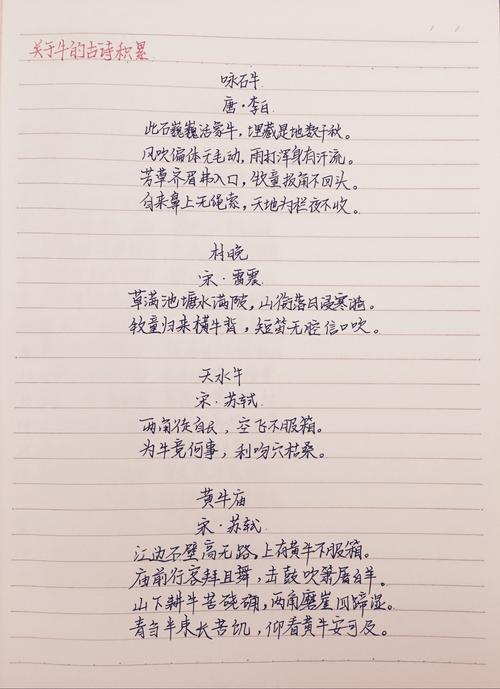 关于牛的古诗积累
咏石牛
唐·李白
此石巍巍活象牛，埋藏是地数千秋。
风吹偏体无毛动，雨打浑身有汗流。
芳草齐眉弗入口，牧童扳角不回头。
自来鼻上无绳索，天地为栏夜不收。
村晚
宋·雷震
草满池塘水满陂，山衔落日浸寒漪。
牧童归来横牛背，短笛无腔信口吹。
天水牛
宋·苏轼
两角徒自长，空飞不服箱。
为牛竟何事，利吻穴枯桑。
黄牛庙
宋·苏轼
江边石壁高无路，上有黄牛不服箱。
庙前行客拜且舞，击鼓吹箫屠白羊。
山下耕牛苦硗确，两角磨崖四蹄湿。
青刍半束长苦饥，仰看黄牛安可及。